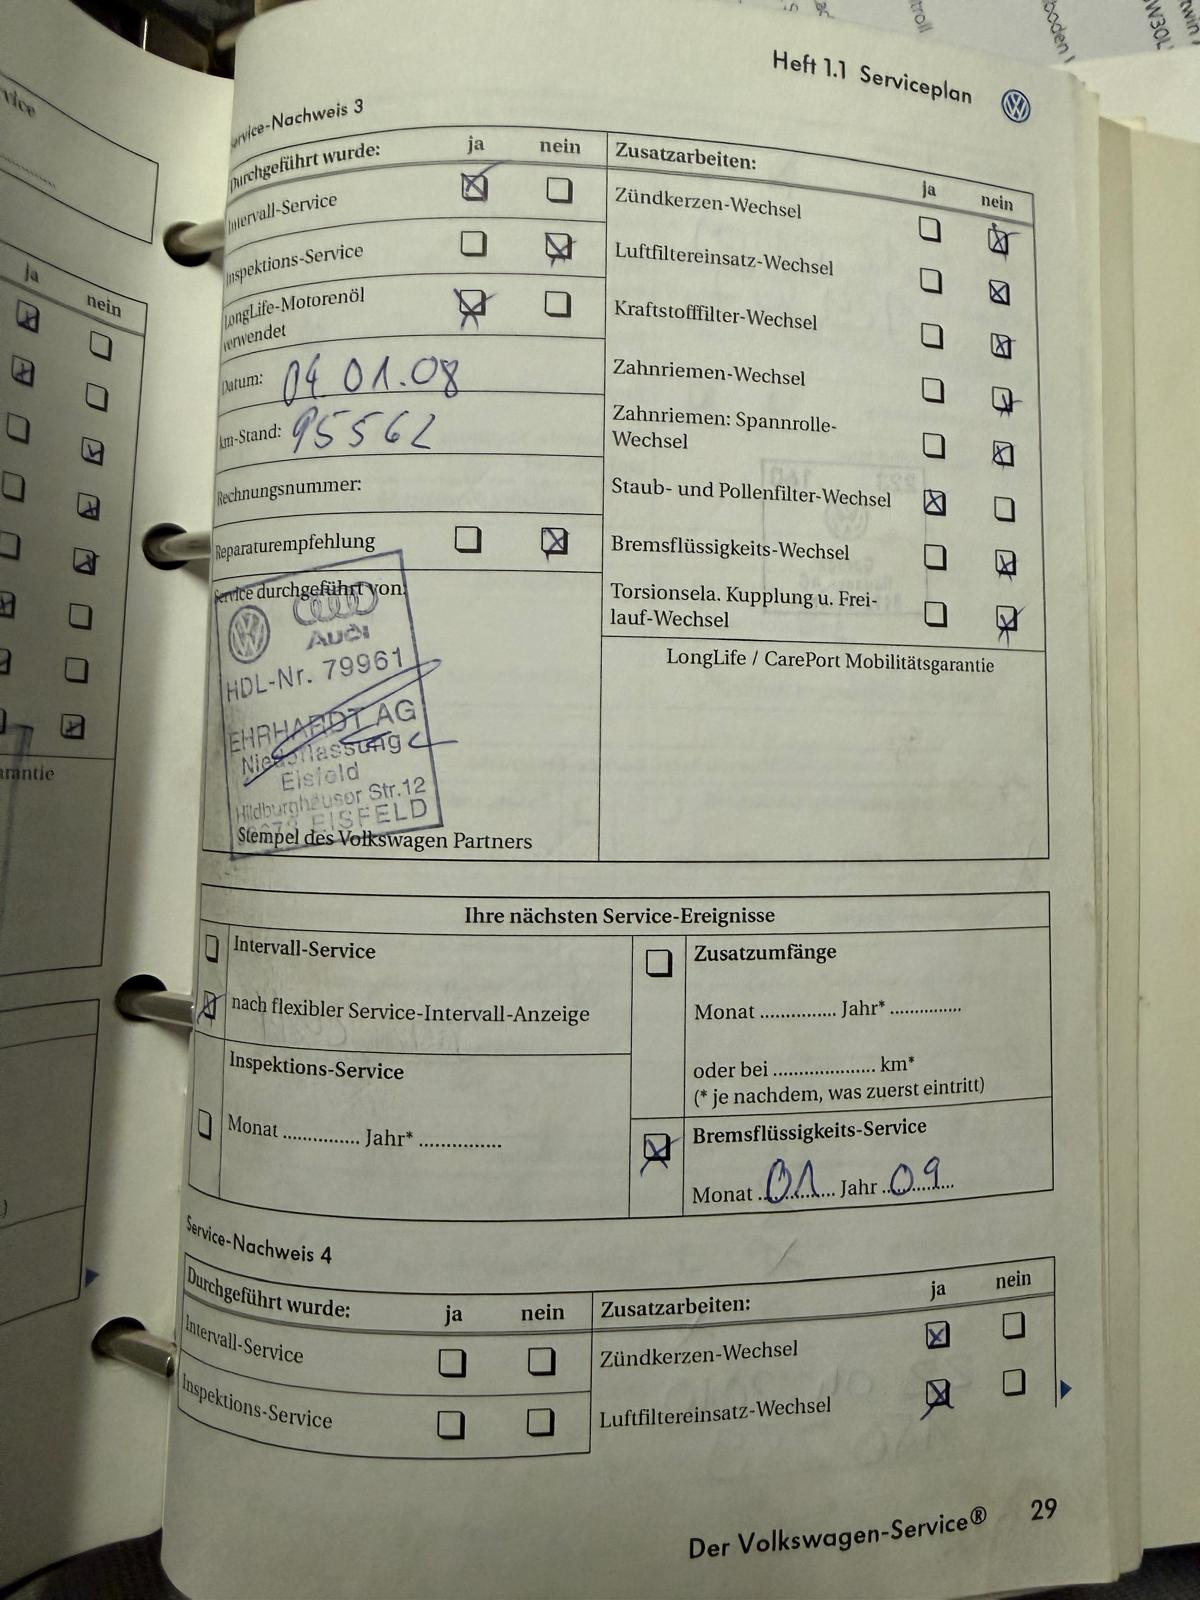 Heft 1.1 Serviceplan
Service-Nachweis 3
Durchgeführt wurde: ja nein
Intervall-Service
Inspektions-Service
LongLife-Motorenöl
verwendet
Datum: 04 01.08
km-Stand: 95562
Rechnungsnummer:
Reparaturempfehlung
Service durchgeführt von:
Audi
HDL-Nr. 79961
EHRHARDT AG
Niederlassung
Eisfeld
Hildburghäuser Str.12
EISFELD
Stempel des Volkswagen Partners
Zusatzarbeiten:
ja nein
Zündkerzen-Wechsel
Luftfiltereinsatz-Wechsel
Kraftstofffilter-Wechsel
Zahnriemen-Wechsel
Zahnriemen: Spannrolle-
Wechsel
Staub- und Pollenfilter-Wechsel
Bremsflüssigkeits-Wechsel
Torsionsela. Kupplung u. Frei-
lauf-Wechsel
LongLife / CarePort Mobilitätsgarantie
Ihre nächsten Service-Ereignisse
Intervall-Service
nach flexibler Service-Intervall-Anzeige
Inspektions-Service
Monat .............. Jahr* ...............
Zusatzumfänge
Monat .............. Jahr* ..............
oder bei .................... km*
(* je nachdem, was zuerst eintritt)
Bremsflüssigkeits-Service
Monat 01 Jahr 09
Service-Nachweis 4
Durchgeführt wurde: ja nein
Intervall-Service
Inspektions-Service
Zusatzarbeiten: ja nein
Zündkerzen-Wechsel
Luftfiltereinsatz-Wechsel
Der Volkswagen-Service® 29
ja nein